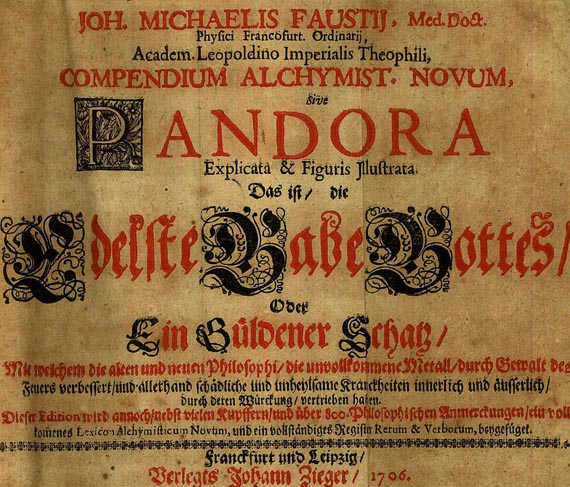 JOH. MICHAELIS FAUSTIJ, Med. Doct.
Physici Francofurt. Ordinarij,
Academ. Leopoldino Imperialis Theophili,
COMPENDIUM ALCHYMIST. NOVUM,
sive
PANDORA
Explicata & Figuris Illustrata.
Das ist / die
Edelste Gabe Gottes /
Oder
Ein Güldener Schatz /
Mit welchem die alten und neuen Philosophi / die unvollkommene Metall / durch Gewalt des
Feuers verbessert / und allerhand schädliche und unheylsame Kranckheiten innerlich und äusserlich /
durch deren Würckung / vertrieben haben.
Dieser Edition wird annoch / nebst vielen Kupffern / und über 800. Philosophischen Anmerckungen / ein voll
komenes Lexicon Alchymisticum Novum, und ein vollständiges Register Rerum & Verborum, beygefüget.
Franckfurt und Leipzig /
Verlegts Johann Zieger / 1706.